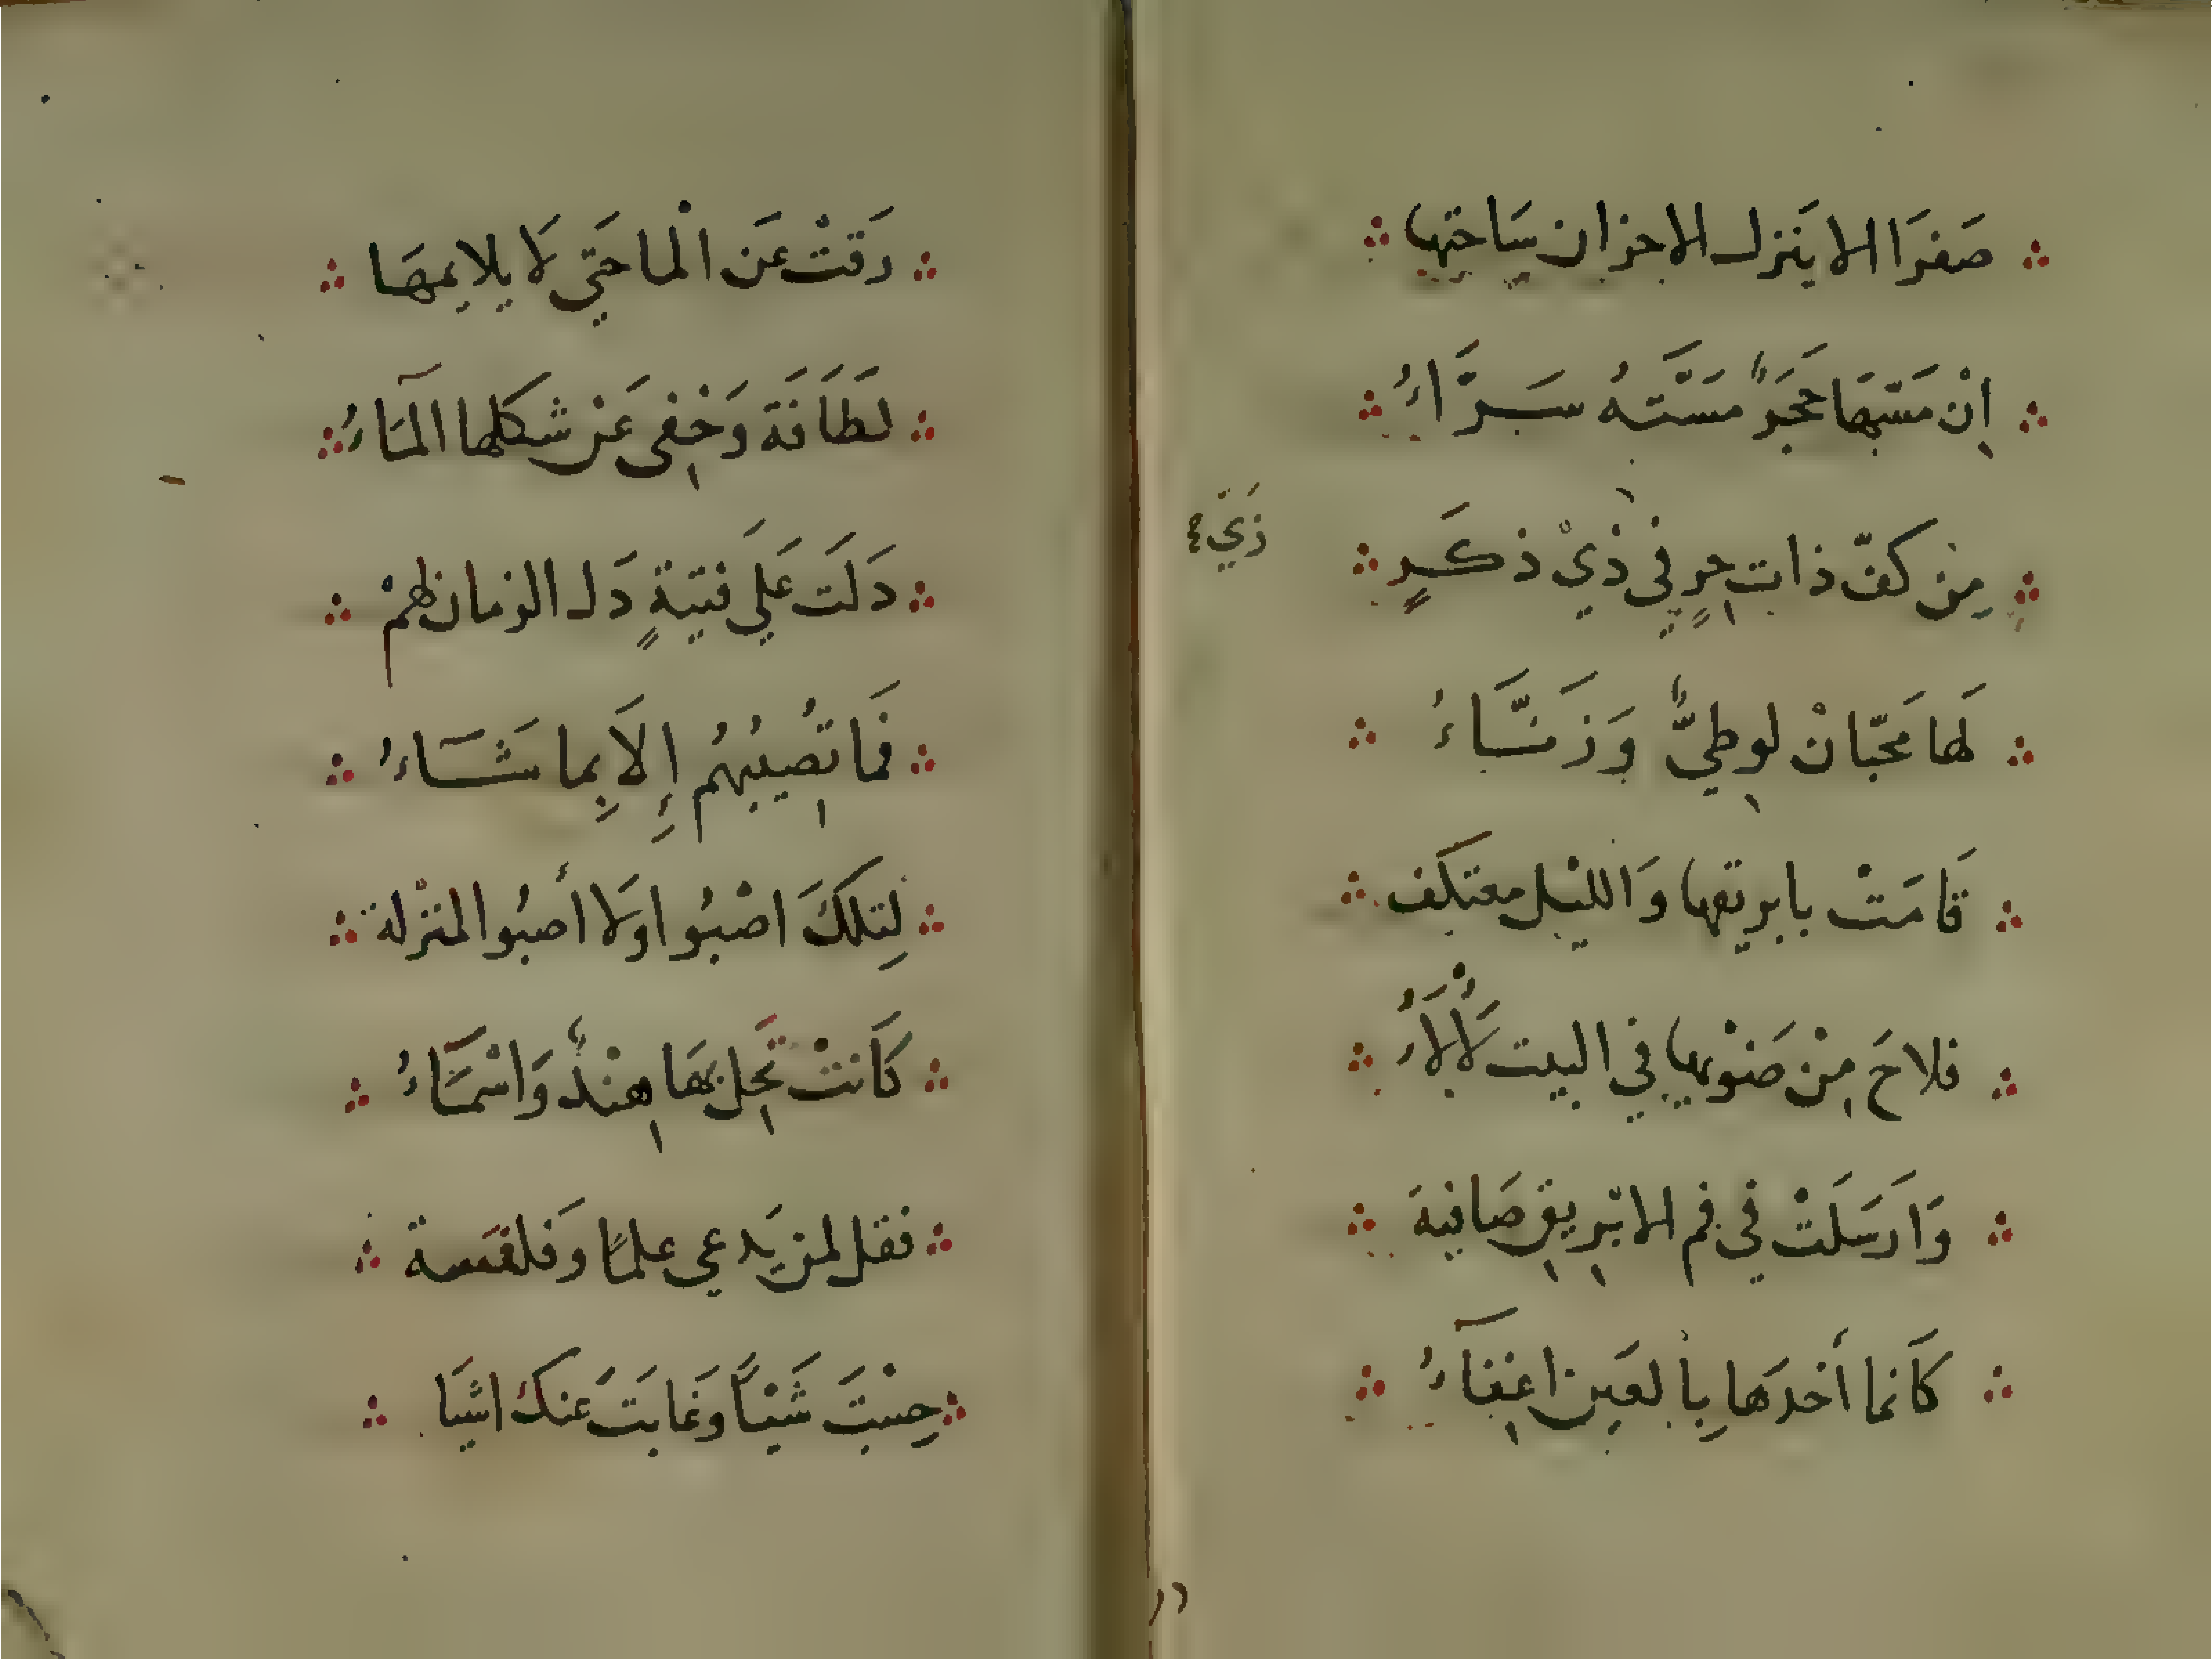 صَفرَا الا يَنزل الاحزان سَاحتها
اِنْ مَسّهَا حَجَرٌ مَسَّتهُ سَرَّاءُ
مِن كفّ ذات حِرٍ في ذيْ ذكَرٍ
زَيّ
لَها مَحبّانْ لوطِيٌّ وَزَنَّاءُ
قامَتْ بابريقها وَالليْل معتكف
فلاحَ مِنْ ضَوْئها في البيت لَأْلَاءُ
وَارسَلَتْ في فم الابْرِيقِ صَافيةَ
كَانما أخدهَا بِالعَين اغِفَآءُ
رَقتْ عَن الْما حَتي لَا يلايمهَا
لطَافَة وَخِفى عَن شكلها المَآءُ
دَلَت عَلي فتيَةٍ دَل الزمان لهمْ
فمَا تصِيبُهُم إِلَا بِما شَاءُ
لِتلكَ اصْبُوا وَلا أصبُوا لمنزْلة
كَانتْ تحِل بهَا هِندٌ وَاسْمَآءُ
فقل لمن يَدعي علمًا وَفلفسة
حِسْتَ شَيْـًٔا وغَابَتَ عَنكَ اشيَا
١٢